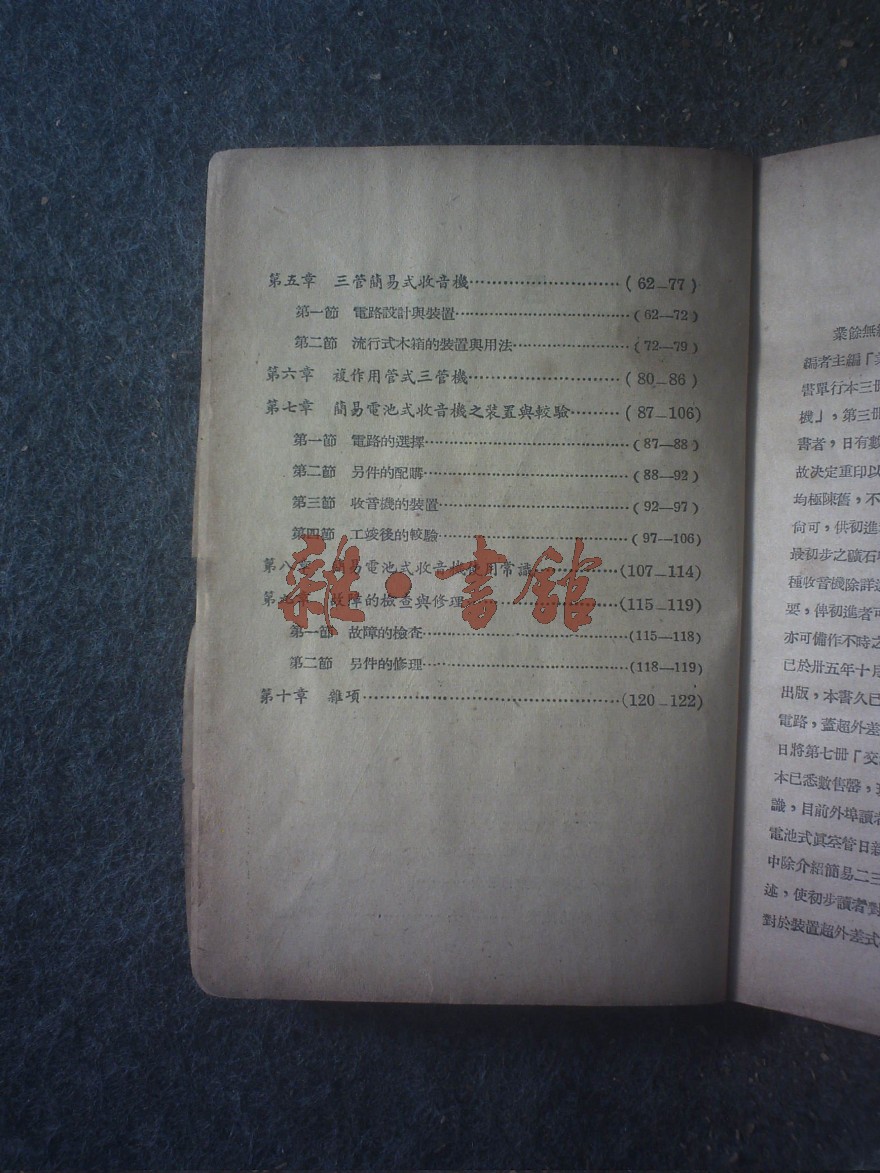 第五章　三管簡易式收音機…………………………(62—77)
第一節　電路設計與裝置…………………………(62—72)
第二節　流行式木箱的裝置與用法…………………(72—79)
第六章　複作用管式三管機…………………………(80—86)
第七章　簡易電池式收音機之裝置與較驗…………(87—106)
第一節　電路的選擇…………………………………(87—88)
第二節　另件的配購…………………………………(88—92)
第三節　收音機的裝置………………………………(92—97)
第四節　工竣後的較驗………………………………(97—106)
第八章　簡易電池式收音機使用常識………………(107—114)
第九章　故障的檢查與修理…………………………(115—119)
第一節　故障的檢查…………………………………(115—118)
第二節　另件的修理…………………………………(118—119)
第十章　雜項…………………………………………(120—122)
雜·書館
業餘無
編者主編「
書單行本三冊
機」，第三冊
書者，日有數
故決定重印以
均極陳舊，不
尙可，供初進
最初步之礦石
種收音機除詳
要，俾初進者可
亦可備作不時之
已於卅五年十月
出版，本書久已
電路，蓋超外差
日將第七冊「交
本已悉數售罄，
識，目前外埠讀者
電池式眞空管日
中除介紹簡易二三
述，使初步讀者對
對於裝置超外差式